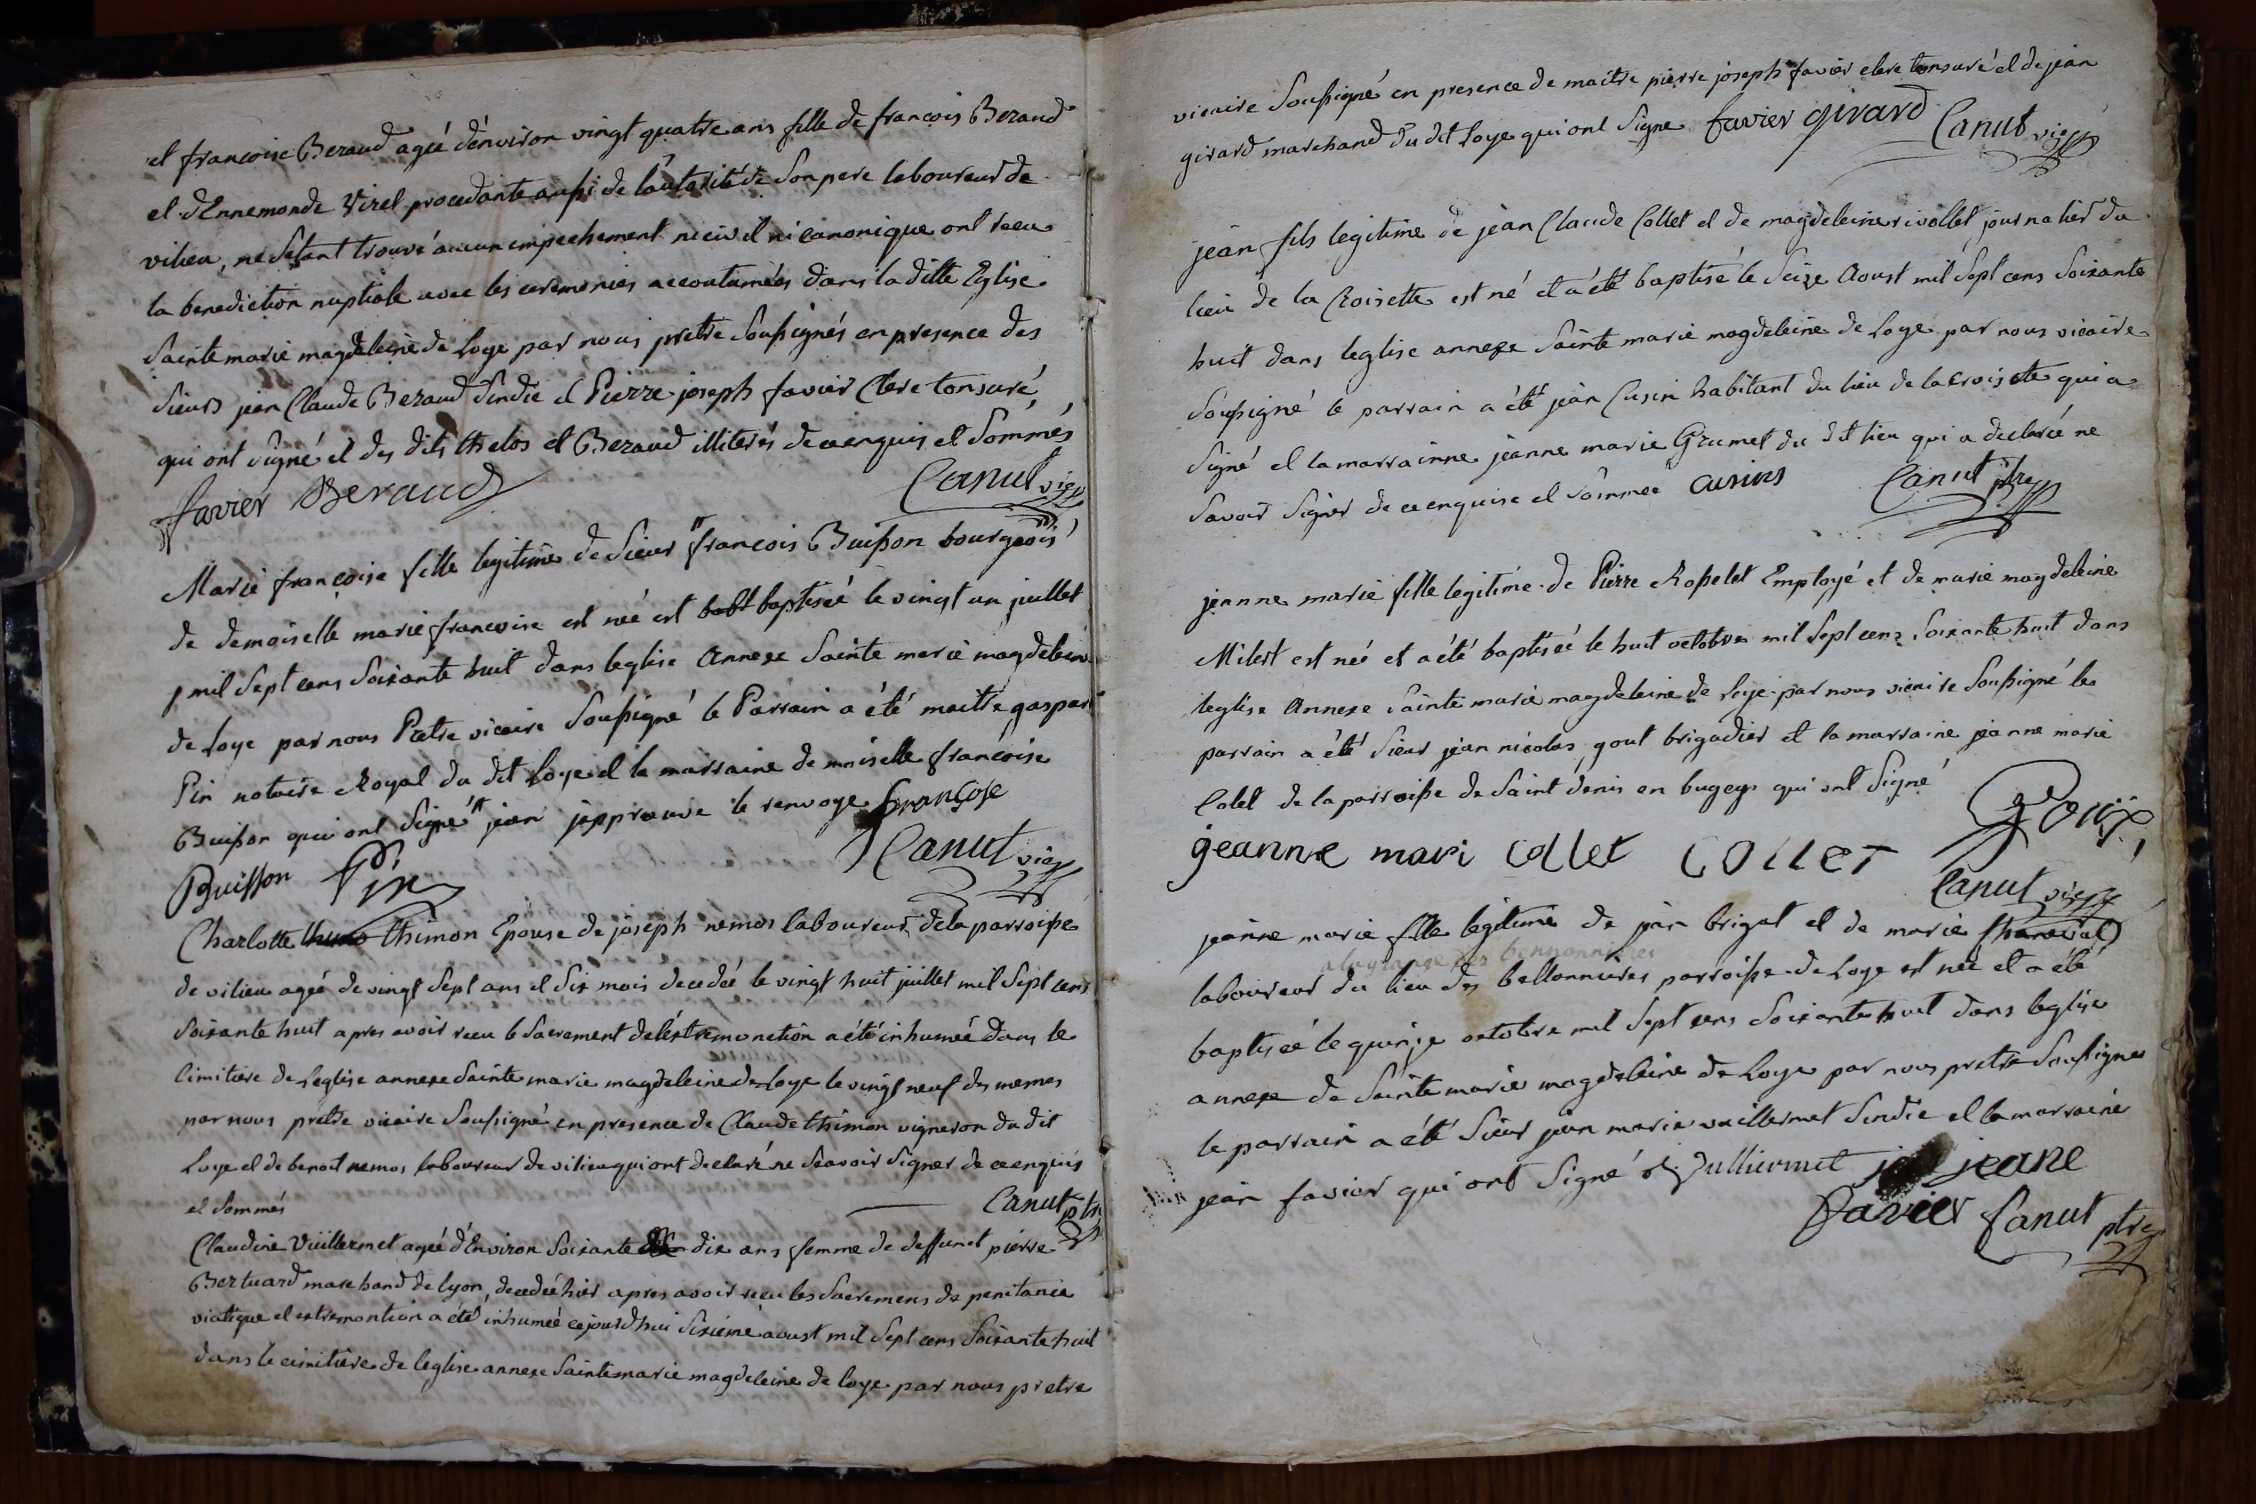 et francoise Beraud agée d'environ vingt quatre ans fille de francois Beraud
et d'Ennemonde Virel procedante aussi de lautorité de son pere laboureur de
vilieu, ne sétant trouvé aucun empechement ni civil ni canonique ont recu
la benediction nuptiale avec les ceremonies accoutumées dans la ditte Eglise
Sainte marie magdeleine de Loye par nous pretre soussignés en presence des
sieurs jean Claude Beraud sindic et Pierre joseph favier Clerc tonsuré,
qui ont signé et des dits thelos et Beraud illiterés de ce enquis et sommés
favier Beraud Canut vic
Marie françoise fille legitime de sieur francois Buisson bourgeois
de demoiselle marie francoise est née est babt baptisée le vingt un juillet
mil sept cens soixante huit dans leglise annexe Sainte marie magdeleine
de Loye par nous Pretre vicaire soussigné le Parrain a été maitre gaspard
Pin notaire Royal du dit Loye et la marraine demoiselle francoise
Buisson qui ont signé jean japprouve le renvoye françose
Buisson Pin Canut vic
Charlotte thimo thimon Epouse de joseph nemos laboureur de la parroisse
de vilieu agée de vingt sept ans et six mois decedée le vingt huit juillet mil sept cens
soixante huit apres avoir recu le sacrement de léxtremonction a été inhumée dans le
cimitiere de Leglise annexe Sainte marie magdeleine de Loye le vingt neuf du memes
par nous pretre vicaire soussigné en presence de Claude thimon vigneron du dit
Loye et de benoit nemos laboureur de vilieu qui ont declaré ne scavoir signer de ce enquis
et sommés Canut ptre
Claudine Vuillermet agée d'Environ soixante dix ans femme de deffunct pierre
Bertuard marchand de lyon, decedée hier apres avoir recu les sacremens de penitance
viatique et extremontion a été inhumée ce jourdhui sixiéme aoust mil sept cens soixante huit
dans le cimitiere de leglise annexe Sainte marie magdeleine de loye par nous pretre
vicaire soussigné en presence de maitre pierre joseph favier clerc tonsuré et de jean
girard marchand du dit Loye qui ont signe favier girard Canut vic
jean fils legitime de jean Claude Collet et de magdeleine rivollet journalier du
lieu de la Croisette est né et a été baptisé le seize Aoust mil sept cens soixante
huit dans leglise annexe Sainte marie magdeleine de Loye par nous vicaire
soussigné le parrain a été jean Cusin habitant du lieu de la croisette qui a
signé et la marrainne jeanne marie Grumet du dit lieu qui a declarée ne
savoir signer de ce enquise et sommée cusins Canut ptre
jeanne marie fille legitime de Pierre Rosselet Employé et de marie magdeleine
Milest est née et a été baptisée le huit octobre mil sept cens soixante huit dans
leglise Annexe Sainte marie magdeleine de Loye par nous vicaire soussigné le
parrain a été sieur jean nicolas gout brigadier et la marraine jeanne marie
Colet de la parroisse de Saint denis en bugey qui ont signé
jeanne mari collet COLLET Goux
Canut vic
jeanne marie fille legitime de jean brigat et de marie
a la grange des bennonnieres
laboureur du lieu des bellonnieres parroisse de Loye est née et a été
baptisée le quinze octobre mil sept cens soixante huit dans leglise
annexe de Sainte marie magdeleine de Loye par nous pretre soussigné
le parrain a été sieur jean marie vuillermet sindic et la marraine
jean favier qui ont signé Vulliermet jeane
favier Canut ptre